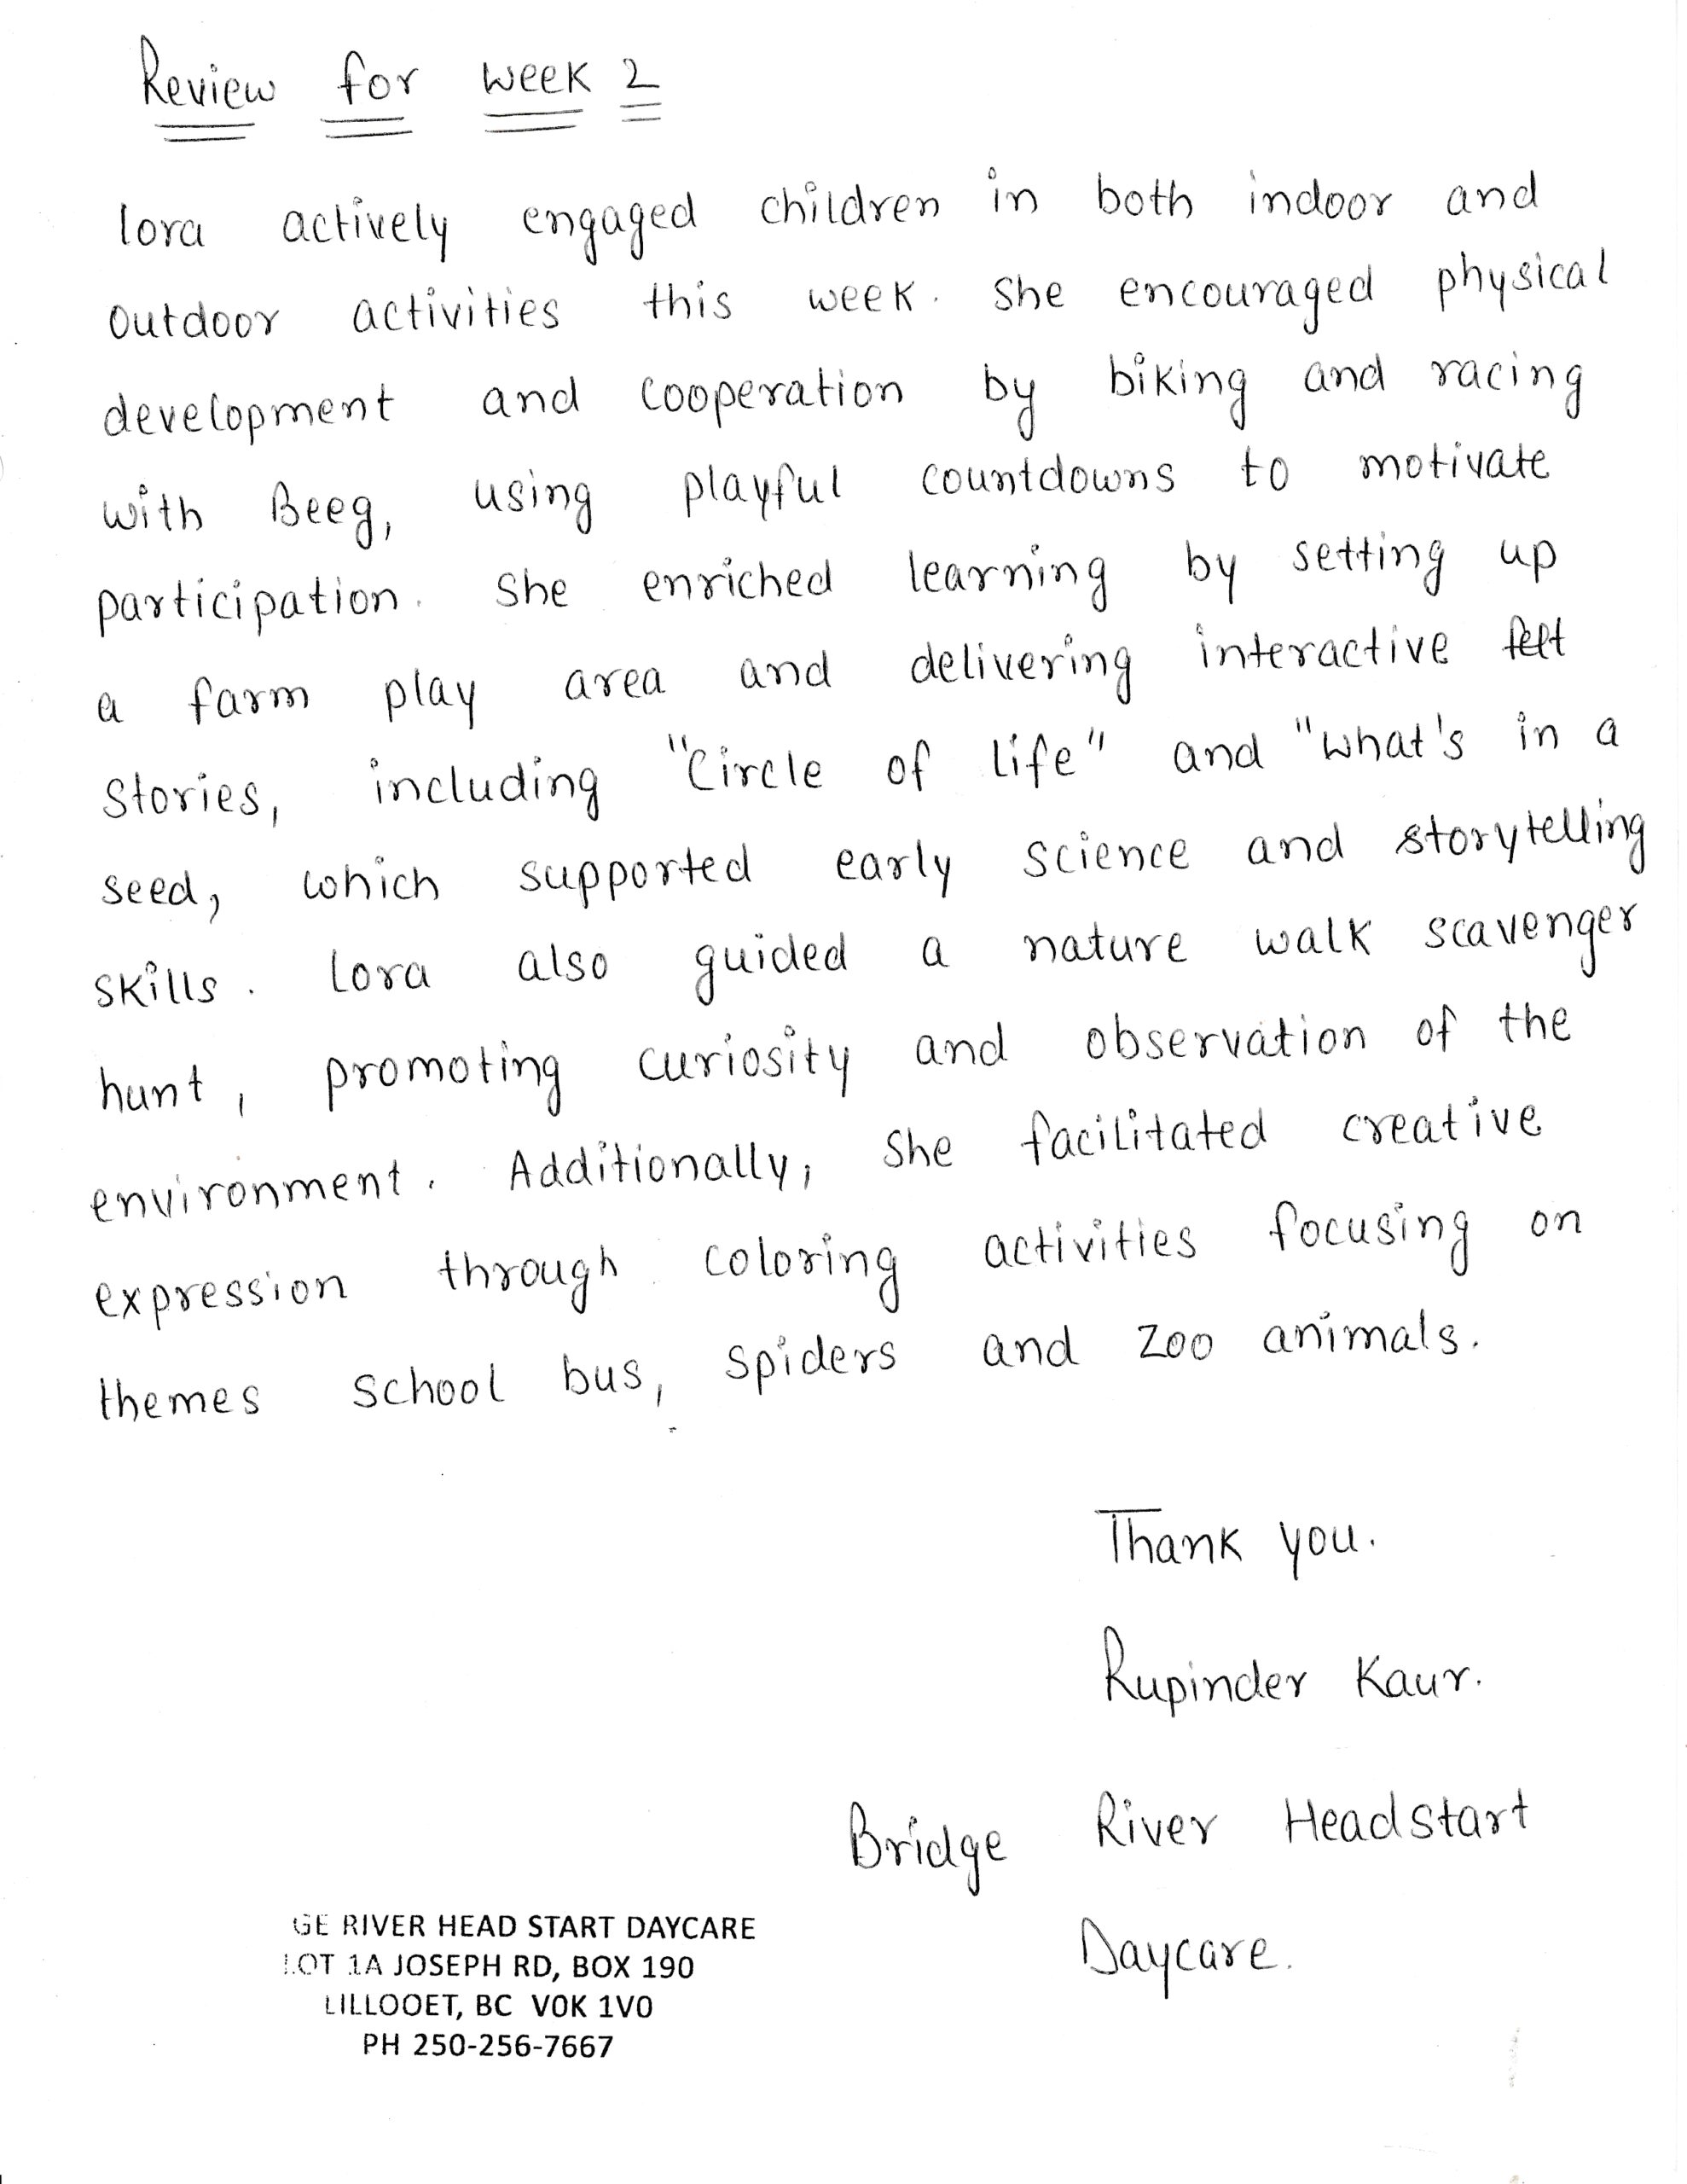 Review for week 2
lora actively engaged children in both indoor and
outdoor activities this week. She encouraged physical
development and cooperation by biking and racing
with Beeg, using playful countdowns to motivate
participation. She enriched learning by setting up
a farm play area and delivering interactive felt
stories, including "Circle of life" and "what's in a
seed, which supported early science and storytelling
skills. lora also guided a nature walk scavenger
hunt, promoting curiosity and observation of the
environment. Additionally, she facilitated creative
expression through coloring activities focusing on
themes school bus, spiders and zoo animals.
Thank you.
Rupinder Kaur.
Bridge River Headstart
Daycare.
GE RIVER HEAD START DAYCARE
LOT 1A JOSEPH RD, BOX 190
LILLOOET, BC V0K 1V0
PH 250-256-7667